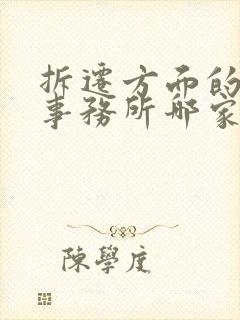 拆遷方面的
事務所哪家
陳學度